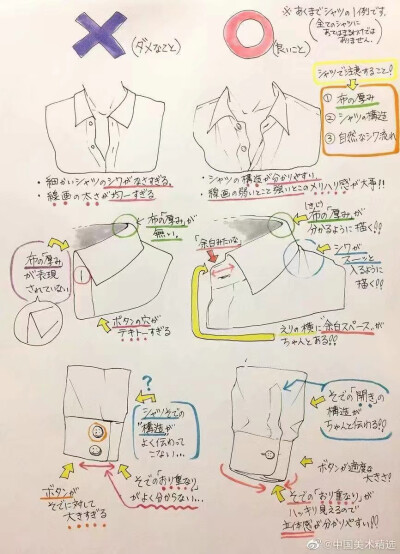 ※あくまでシャツの1例です。
(全てのシャツに
あてはまるわけでは
ありません。)
(ダメなこと)
(良いこと)
シャツで注意すること!
① 布の厚み
② シャツの構造
③ 自然なシワ流れ
・細かいシャツのシワがなさすぎる。
・線画の太さが均一すぎる
・シャツの構造が分かりやすい。
・線画の弱いとこと強いとこのメリハリ感が大事!!
布の「厚み」が
無い。
布の「厚み」
が表現
されていない
ボタンの穴が
テキトーすぎる
「余白みたいな」
(はじ)
布の「厚み」が
分かるように描く!!
シワが
スーッと
入るように
描く!!
えりの横に「余白スペース」が
ちゃんとある!!
?
シャツそでの
"構造"が
よく伝わって
こない…
ボタンが
そでに対して
大きすぎる
そでの「おり重なり」
がよく分からない…
そでの「開き」の
構造が
ちゃんと伝わる!!
ボタンが適度な
大きさ!
そでの「おり重なり」が
ハッキリ見えるので
立体感が分かりやすい!!
@中国美术精选